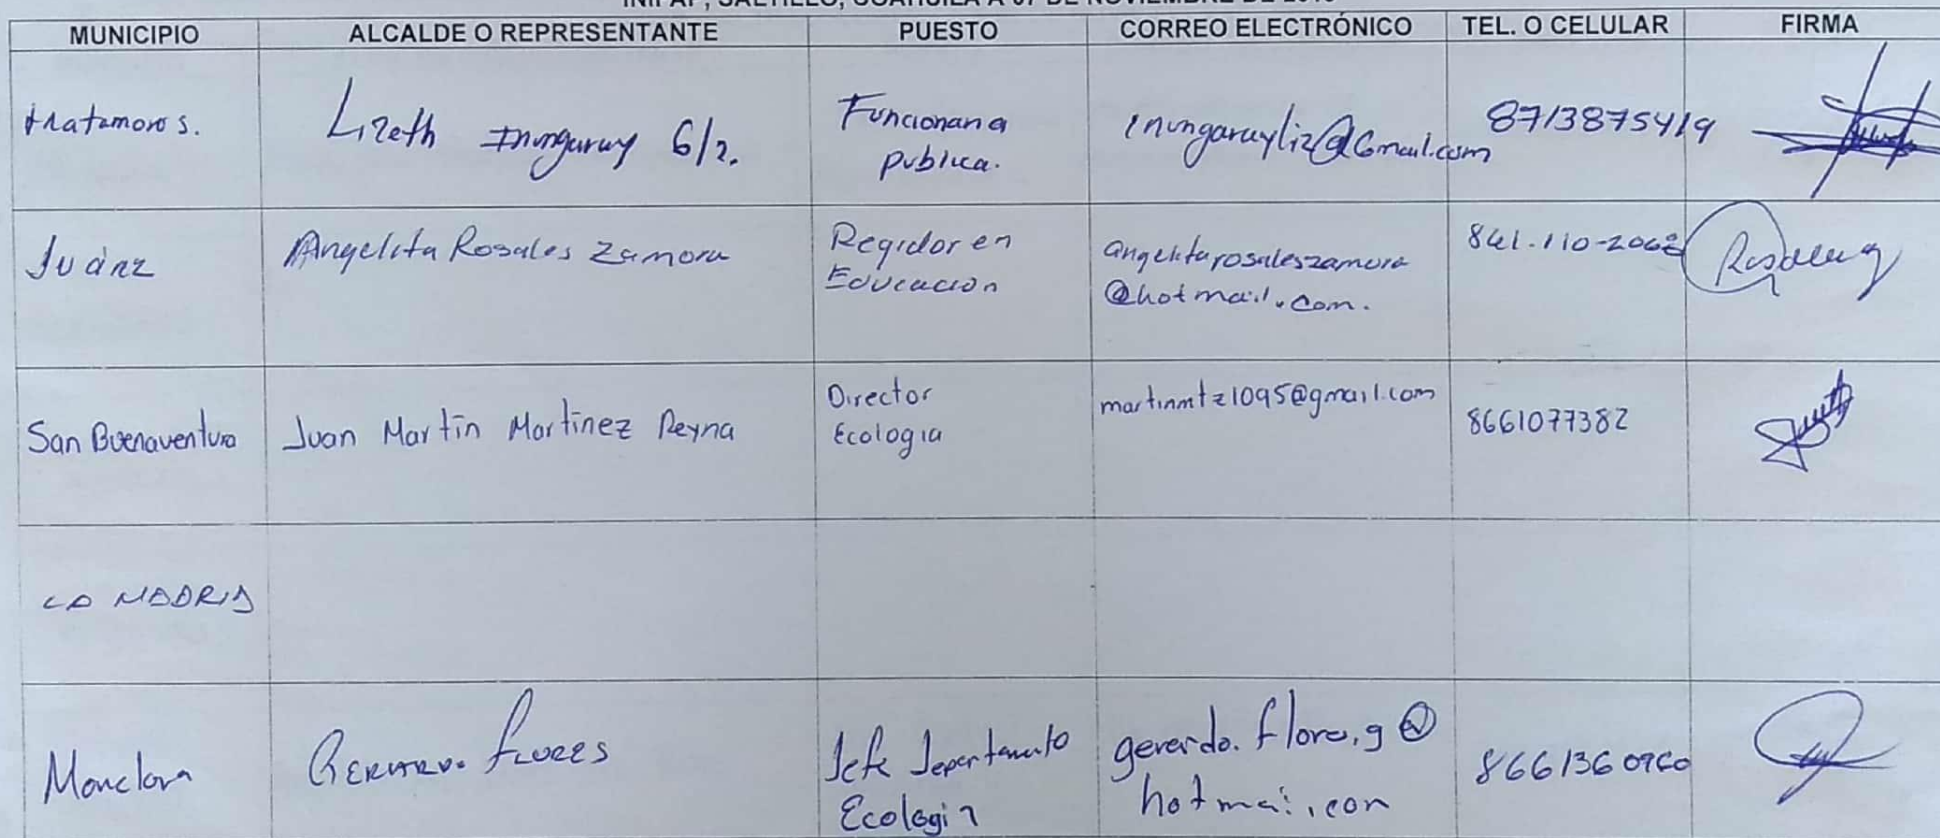 MUNICIPIO ALCALDE O REPRESENTANTE PUESTO CORREO ELECTRÓNICO TEL. O CELULAR FIRMA
Matamoros. Lizeth Inungaray G/z. Funcionaria
publica. inungarayliz@Gmail.com 8713875419
Juárez Angelita Rosales Zamora Regidor en
Educacion angelitarosaleszamora
@hotmail.com. 861-110-2062
San Buenaventura Juan Martín Martínez Reyna Director
Ecologia martinmtz1095@gmail.com 8661077382
LA MADRID
Monclova GERARDO FLORES Jefe Departamento
Ecologia gerardo.flores.g@
hotmai.com 8661360960